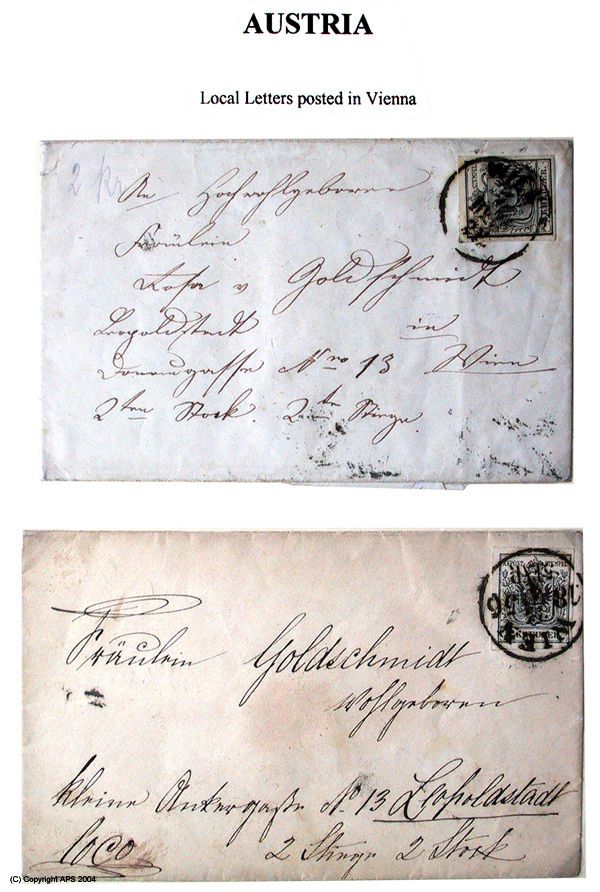 AUSTRIA
Local Letters posted in Vienna
2 kr
An Hochwohlgeboren
Fräulein
Rosa v Goldschmidt
Leopoldstadt in
Donaugasse Nro 13 Wien
2ten Stock. 2te Stiege.
Fräulein Goldschmidt
Wohlgeboren
kleine Ankergaße No 13 Leopoldstadt
loco 2 Stiege 2 Stock
(C) Copyright APS 2004